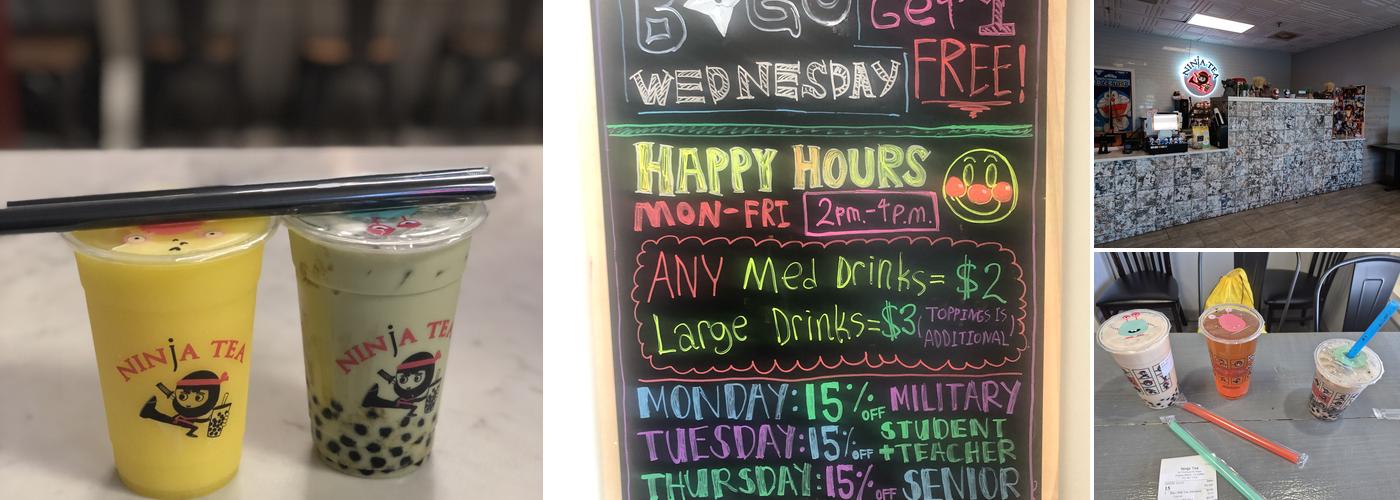 NINJA TEA
NINJA TEA
BOGO
Get 1
WEDNESDAY
FREE!
HAPPY HOURS
MON-FRI 2pm.-4p.m.
ANY Med Drinks= $2
Large Drinks=$3 (TOPPINGS IS ADDITIONAL)
MONDAY: 15% OFF MILITARY
TUESDAY: 15% OFF STUDENT +TEACHER
THURSDAY: 15% OFF SENIOR
NINJA TEA
Ninja Tea